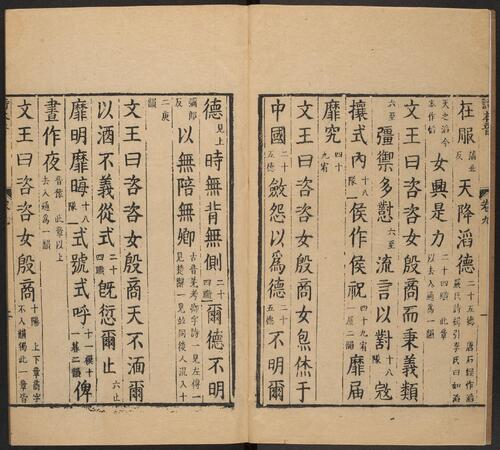 在服 蒲北反 天降滔德 二十五德 唐石經作滔嚴氏詩緝引李氏曰如滔
天之滔今本作慆 女興是力 二十四職 此章以去入通爲一韻
文王曰咨咨女殷商而秉義類
六至 彊禦多懟 六至 流言以對 十八隊 寇
攘式內 十八隊 侯作侯祝 四十九宥一屋二韻 靡屆
靡究 四十九宥
文王曰咨咨女殷商女炰烋于
中國 二十五德 斂怨以爲德 二十五德 不明爾
德 見上 時無背無側 二十四職 爾德不明
彌郎反 以無陪無卿 古音羌考卿字詩一見左傳一見楚辭一見並同後人混入十
二庚韻
文王曰咨咨女殷商天不湎爾
以酒不義從式 二十四職 既愆爾止 六止
靡明靡晦 十八隊 式號式呼 十一模十一暮二韻 俾
晝作夜 音豫 此章以上去入通爲一韻
文王曰咨咨女殷商 十陽 上下章商字不入韻獨此一章皆